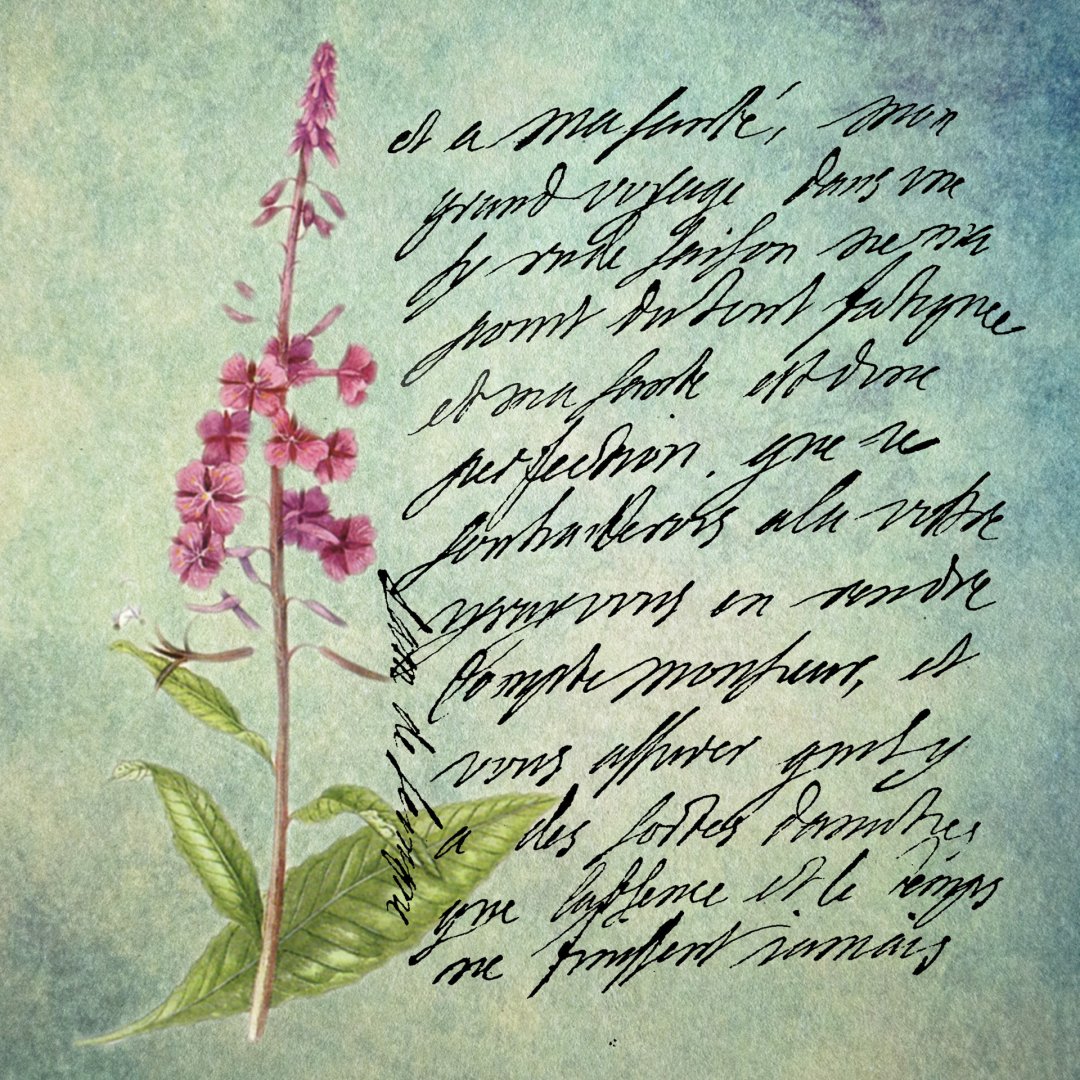 et a ma santé, mon
grand voyage dans une
sy rude saison ne ma
point du tout fatiguee
et ma sante est dune
perfection. que je
souhaiterois a la vostre
vous en rendre
compte monsieur, et
vous assurer quil y
a des sortes damities
que labsence et le temps
ne finissent jamais
de